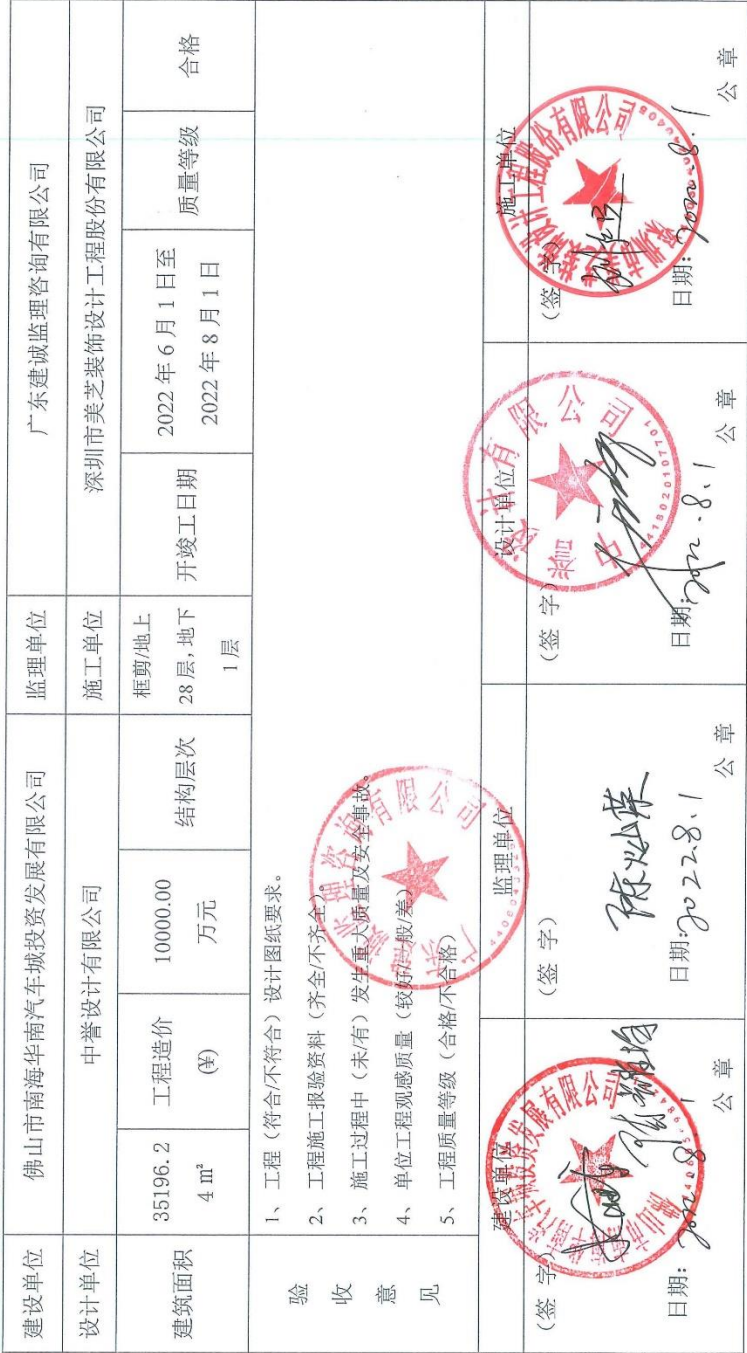 建设单位 佛山市南海华南汽车城投资发展有限公司 监理单位 广东建诚监理咨询有限公司
设计单位 中誉设计有限公司 施工单位 深圳市美芝装饰设计工程股份有限公司
建筑面积 35196.2 4 m² 工程造价 (¥) 10000.00 万元 结构层次 框剪/地上 28层,地下 1层 开竣工日期 2022年6月1日至 2022年8月1日 质量等级 合格
验收意见
1、工程（符合/不符合）设计图纸要求。
2、工程施工报验资料（齐全/不齐全）。
3、施工过程中（未/有）发生重大质量及安全事故。
4、单位工程观感质量（较好/一般/差）
5、工程质量等级（合格/不合格）
建设单位 监理单位 设计单位 施工单位
(签 字) (签 字) (签 字) (签 字)
陈灿荣
日期: 日期:2022.8.1 日期:2022.8.1 日期:
公 章 公 章 公 章 公 章
中誉设计有限公司
4418020107701